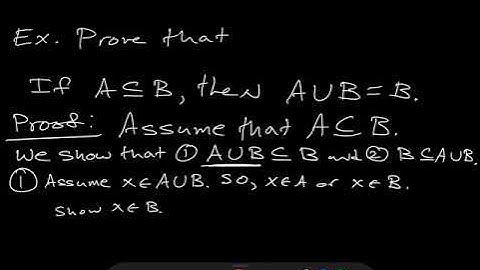 Ex. Prove that
If A ⊆ B, then A ∪ B = B.
Proof: Assume that A ⊆ B.
We show that ① A ∪ B ⊆ B and ② B ⊆ A ∪ B.
① Assume x ∈ A ∪ B. So, x ∈ A or x ∈ B.
Show x ∈ B.